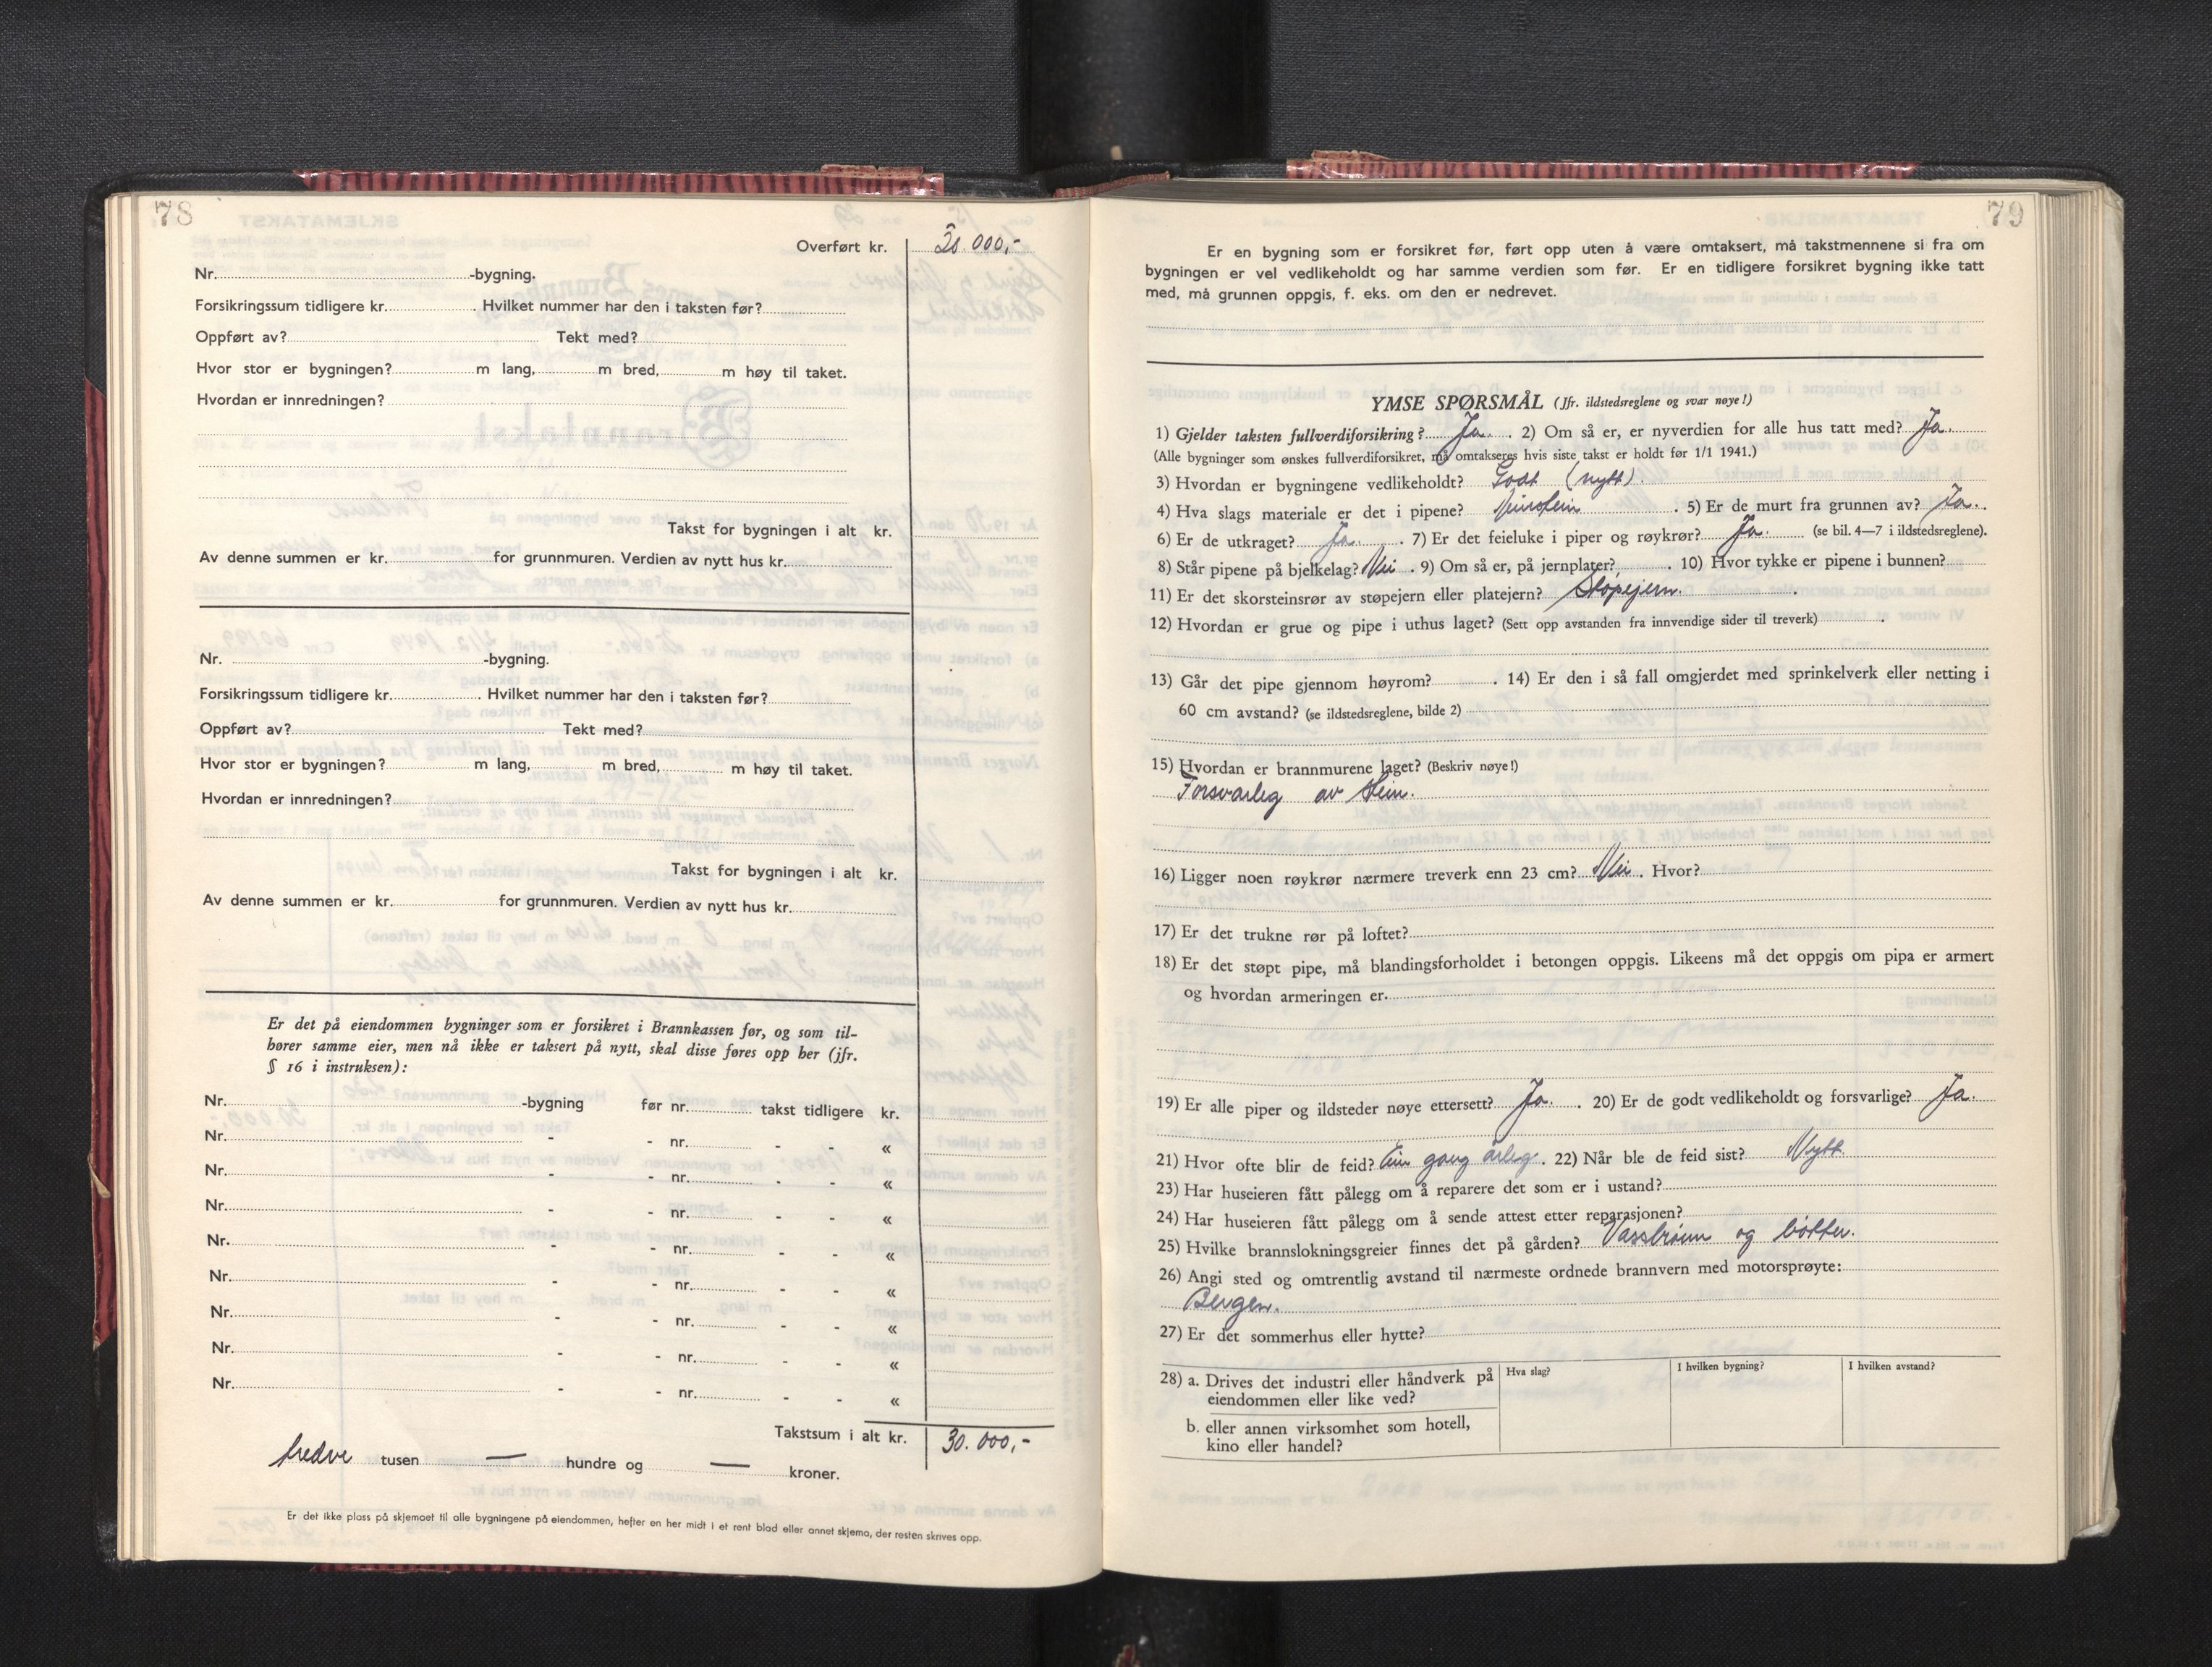 78
Overført kr. 30.000,-
Nr.-bygning.
Forsikringssum tidligere kr. . Hvilket nummer har den i taksten før?
Oppført av? Tekt med?
Hvor stor er bygningen? m lang, m bred, m høy til taket.
Hvordan er innredningen?
Takst for bygningen i alt kr.
Av denne summen er kr. for grunnmuren. Verdien av nytt hus kr.
Nr. -bygning.
Forsikringssum tidligere kr. . Hvilket nummer har den i taksten før?
Oppført av? Tekt med?
Hvor stor er bygningen? m lang, m bred, m høy til taket.
Hvordan er innredningen?
Takst for bygningen i alt kr.
Av denne summen er kr. for grunnmuren. Verdien av nytt hus kr.
Er det på eiendommen bygninger som er forsikret i Brannkassen før, og som til-
hører samme eier, men nå ikke er taksert på nytt, skal disse føres opp her (jfr.
§ 16 i instruksen):
Nr. -bygning før nr. takst tidligere kr.
Nr. - - nr. - - «
Nr. - - nr. - - «
Nr. - - nr. - - «
Nr. - - nr. - - «
Nr. - - nr. - - «
Nr. - - nr. - - «
Nr. - - nr. - - «
Nr. - - nr. - - «
Takstsum i alt kr. 30.000,-
tredve tusen — hundre og — kroner.
Er det ikke plass på skjemaet til alle bygningene på eiendommen, hefter en her midt i et rent blad eller annet skjema, der resten skrives opp.
79
Er en bygning som er forsikret før, ført opp uten å være omtaksert, må takstmennene si fra om
bygningen er vel vedlikeholdt og har samme verdien som før. Er en tidligere forsikret bygning ikke tatt
med, må grunnen oppgis, f. eks. om den er nedrevet.
YMSE SPØRSMÅL (Jfr. ildstedsreglene og svar nøye!)
1) Gjelder taksten fullverdiforsikring? Ja. . 2) Om så er, er nyverdien for alle hus tatt med? Ja.
(Alle bygninger som ønskes fullverdiforsikret, må omtakseres hvis siste takst er holdt før 1/1 1941.)
3) Hvordan er bygningene vedlikeholdt? Godt (nytt).
4) Hva slags materiale er det i pipene? . 5) Er de murt fra grunnen av? Ja.
6) Er de utkraget? Ja. . 7) Er det feieluke i piper og røykrør? Ja. (se bil. 4—7 i ildstedsreglene).
8) Står pipene på bjelkelag? Nei . 9) Om så er, på jernplater? . 10) Hvor tykke er pipene i bunnen?
11) Er det skorsteinsrør av støpejern eller platejern? Støpejern.
12) Hvordan er grue og pipe i uthus laget? (Sett opp avstanden fra innvendige sider til treverk) .
13) Går det pipe gjennom høyrom? . 14) Er den i så fall omgjerdet med sprinkelverk eller netting i
60 cm avstand? (se ildstedsreglene, bilde 2)
15) Hvordan er brannmurene laget? (Beskriv nøye!)
Forsvarleg av stein.
16) Ligger noen røykrør nærmere treverk enn 23 cm? Nei. Hvor?
17) Er det trukne rør på loftet?
18) Er det støpt pipe, må blandingsforholdet i betongen oppgis. Likeens må det oppgis om pipa er armert
og hvordan armeringen er.
19) Er alle piper og ildsteder nøye ettersett? Ja. . 20) Er de godt vedlikeholdt og forsvarlige? Ja.
21) Hvor ofte blir de feid? Ein gang årleg. 22) Når ble de feid sist? Nytt.
23) Har huseieren fått pålegg om å reparere det som er i ustand?
24) Har huseieren fått pålegg om å sende attest etter reparasjonen?
25) Hvilke brannslokningsgreier finnes det på gården? Vassbrønn og bøtter.
26) Angi sted og omtrentlig avstand til nærmeste ordnede brannvern med motorsprøyte:
Bergen.
27) Er det sommerhus eller hytte?
28) a. Drives det industri eller håndverk på
eiendommen eller like ved?
b. eller annen virksomhet som hotell,
kino eller handel?
Hva slag?
I hvilken bygning?
I hvilken avstand?